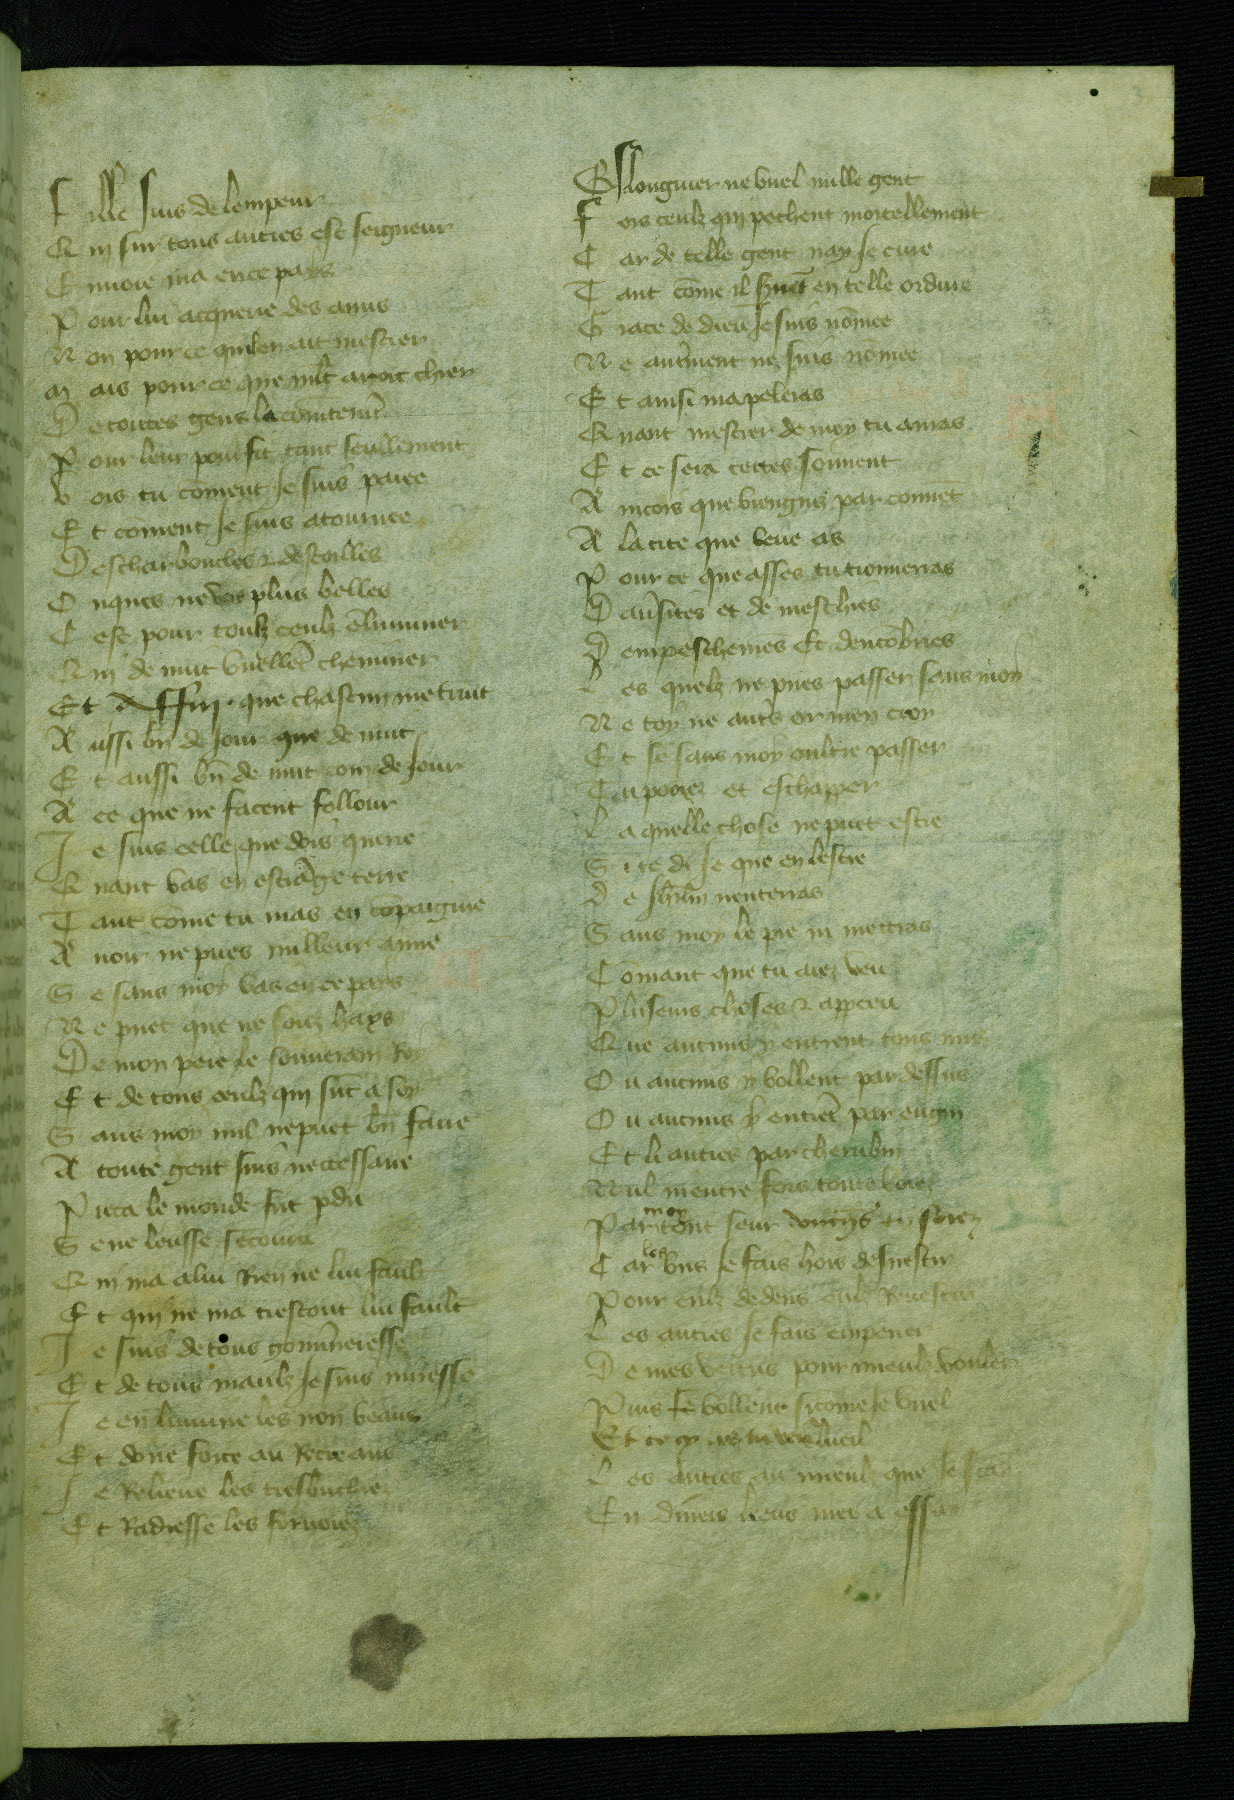 Fille suis de lempeur
Qui sur tous autres est seigneur
Enuoie ma en ce pays
Pour lui acquerie des amis
Non pour ce quil en ait mestier
Mais pour ce que mlt auroit chier
De toutes gens lacointemt
Pour leur pourfit tant seullement
Vois tu coment Je suis paree
Et coment Je suis atournee
Descharboucles & destoilles
Onques ne vois plus belles
Cest pour toulz ceulz elluminer
Qui de nuit vuellet cheminer
Et Affin que chascun me truit
Aussi bn de Jour que de nuit
Et aussi bn de nuit com de Jour
A ce que ne facent follour
Je suis celle que dois querre
Quant vas en estrage terre
Tant come tu mas en copaignie
Auoir ne pues milleur amie
Se sans moy vas en ce pays
Ne puet que ne soiez hays
De mon pere le souuerain Roy
Et de tous ceulz qui sut a soy
Sans moy nul ne puet bn faire
A toute gent suis necessaire
Pieca le monde fut pdu
Se ne leusse secouru
Qui ma a lui Rien ne lui fault
Et qui ne ma trestout lui fault
Je suis de tous gouuneresse
Et de tous maulz Je suis miresse
Je enlumine les non veans
Et done force au Recreans
Je Relieue les tresbuchiez
Et Radresse les foruoiez
Eslonguier ne vuel nulle gent
Fors ceulz qui pechent mortellement
Car de telle gent nay Je cure
Tant come il sunt en telle ordure
Grace de dieu Je suis nomee
Ne autrment ne suis nomee
Et ainsi mapeleras
Quant mestier de moy tu auras
Et ce sera certes souuent
Aincois que viengnes par couuet
A la cite que veue as
Pour ce que asses tu trouueras
Dausites et de meschies
Dempeschemes Et dencobries
Les quelz ne pues passer sans moy
Ne toy ne autrs or men croy
Et se sans moy oultre passer
Tu pouez et eschapper
La quelle chose ne puet estre
Si te di Je que en lestre
De Jhrlm nenteras
Sans moy le pie ni mettras
Comant que tu aiez veu
Pluseurs choses & apperceu
Que aucuns y entrent tous nus
Ou aucuns y vollent par dessus
Ou aucuns y entret par engin
Et li autres par cherubin
Nul nientre fors toutes voiez
Par moy tout seur dont en soiez
Car les vns Je fais hors desuestir
Pour eulz dedens eulz Reuestir
Les autres Je fais empener
De mes vertus pour mieulz vouler
Puis se vollent si come Je vuel
Et ce
Les autres au mieulz que Je scay
En diuers lieus met a essay